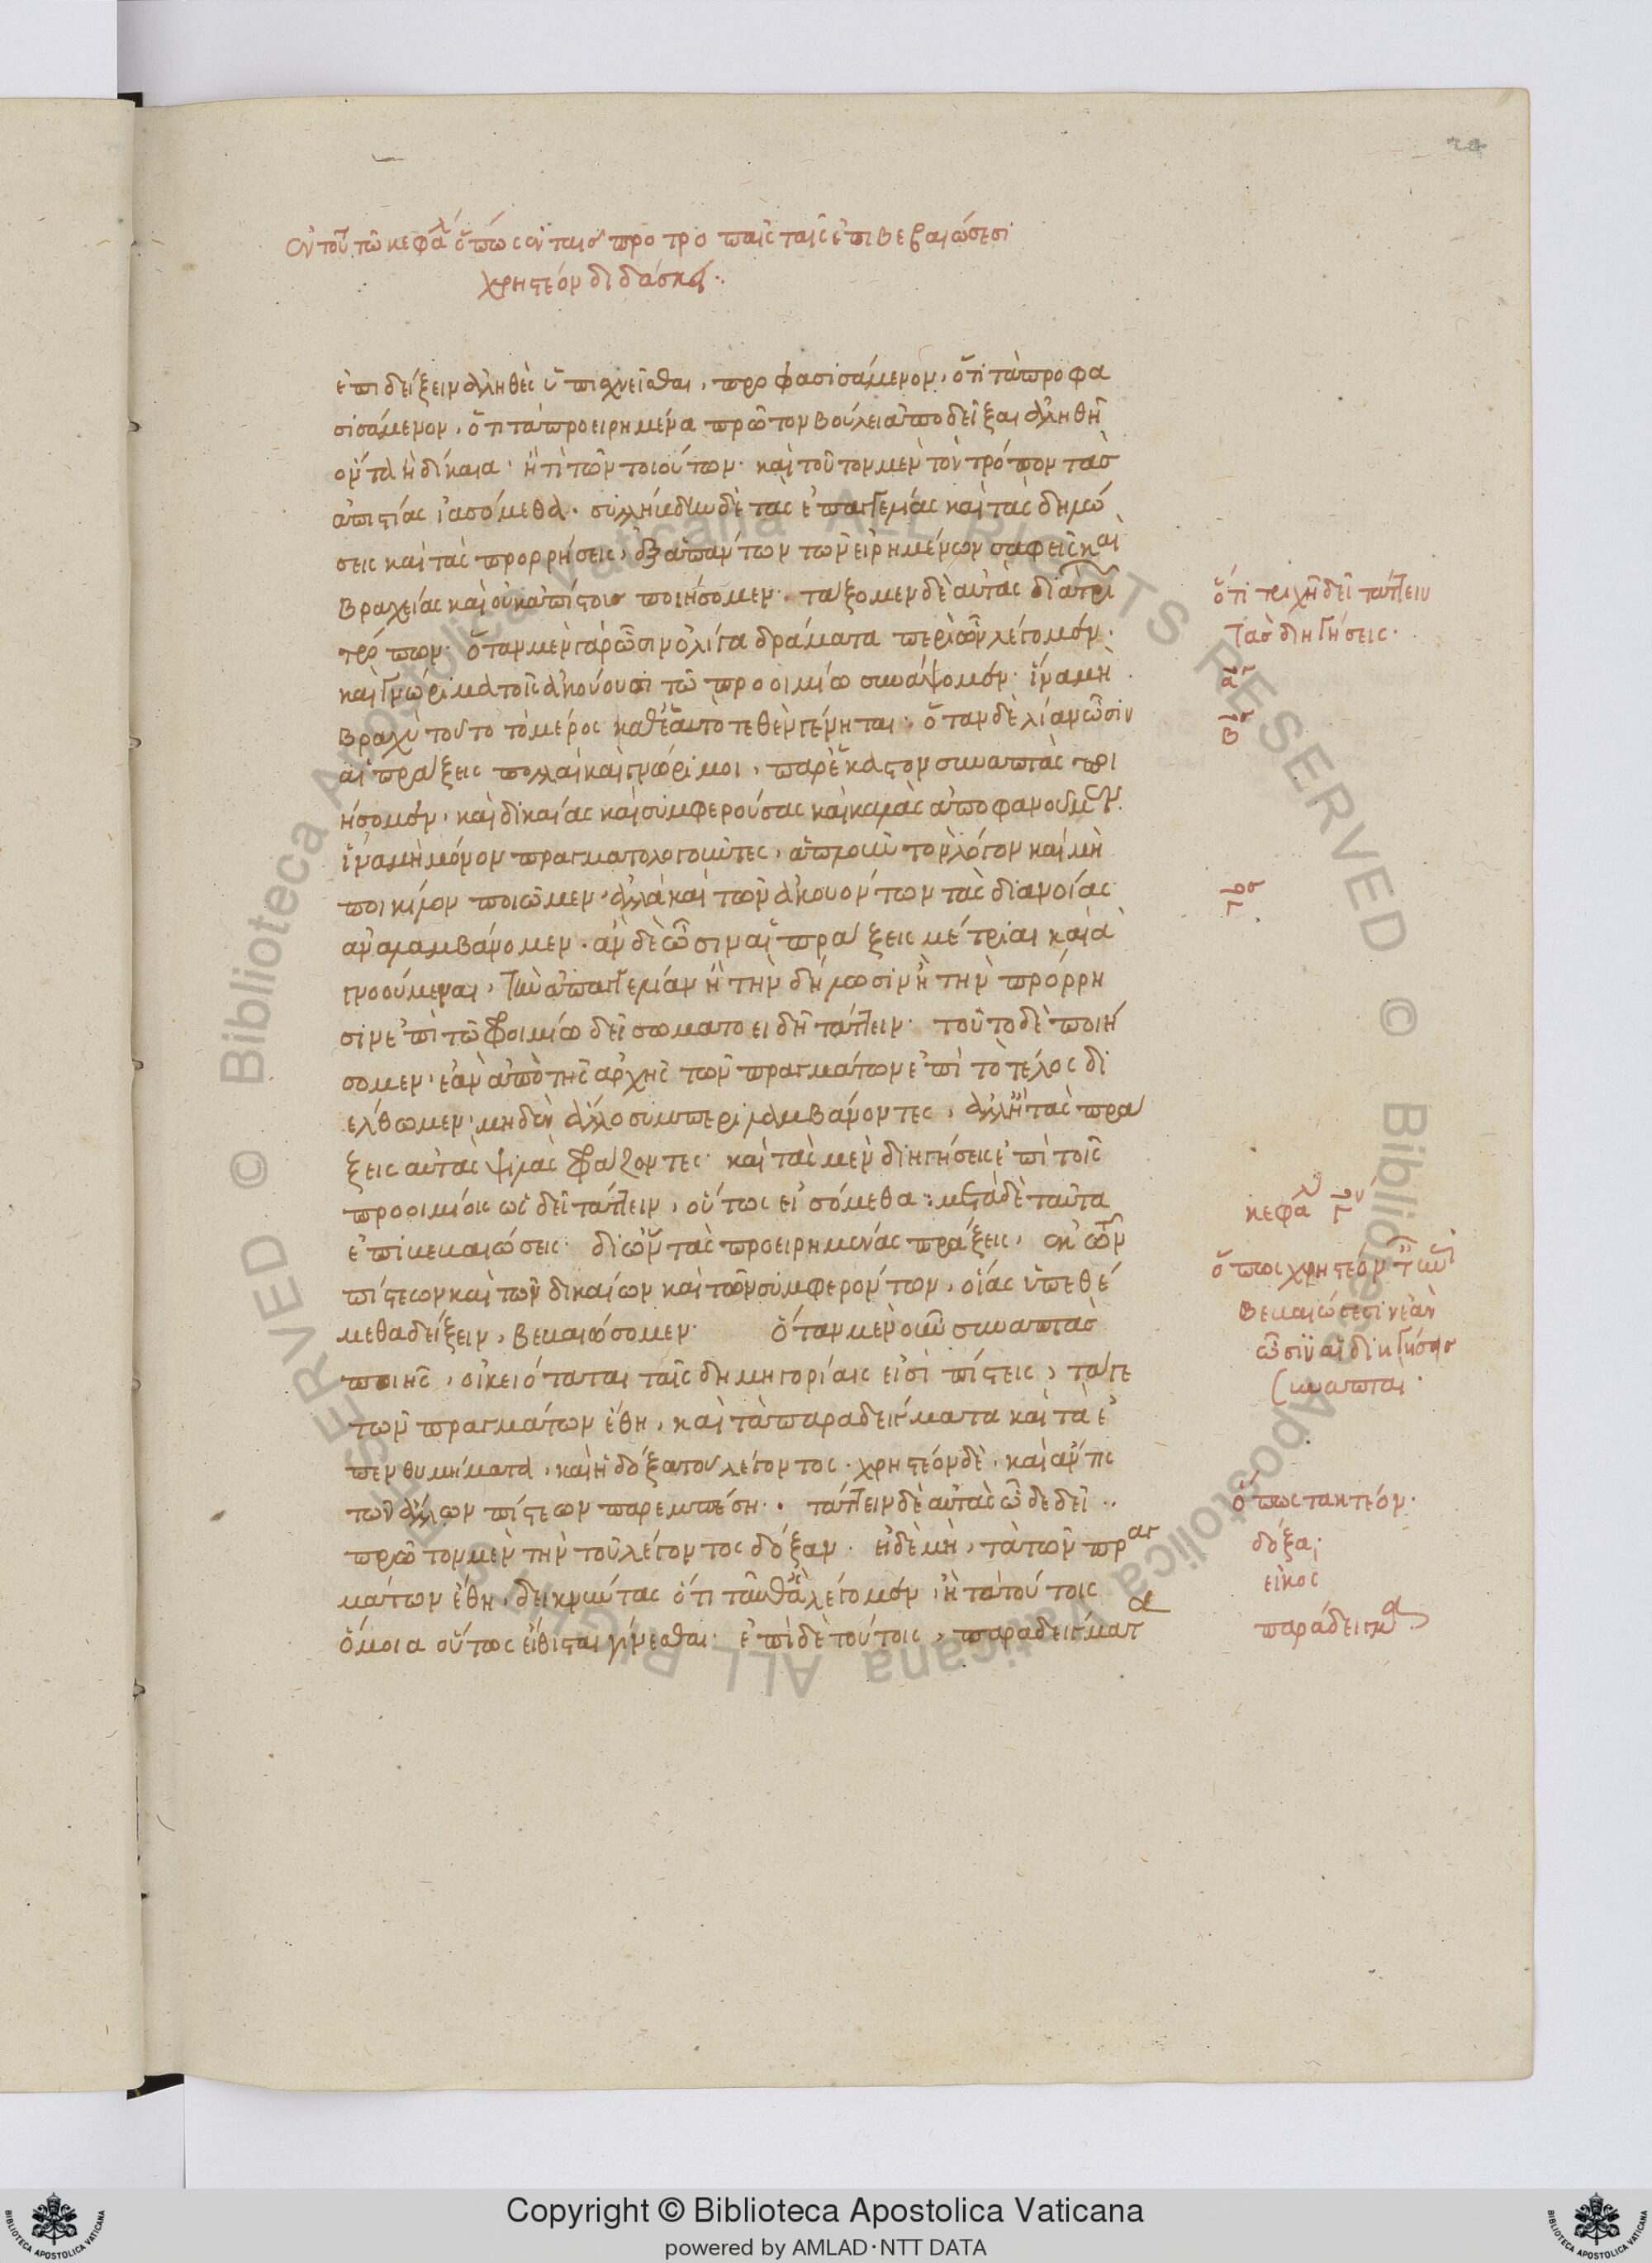 ἐν τούτω κεφαλ ὅπως ἐν ταισ προτροπαῖς ταῖς ἐπιβεβαιώσεσι
χρηστέον διδάσκει·
ἐπιδείξειν ἀληθὲς ὑπισχνεῖσθαι, προφασισάμενον, ὅτι τὰ προφα
σισάμενον, ὅτι τὰ προειρημένα πρῶτον βούλει ἀποδεῖξαι ἀληθῆ
ὄντα ἢ δίκαια· ἤ τι τῶν τοιούτων· καὶ τοῦτον μὲν τὸν τρόπον τὰσ
ἀπιστίας ἰασόμεθα· συλλήβδην δὲ τὰς ἐπαγγελίας καὶ τὰς δηλώ
σεις καὶ τὰς προρρήσεις, ἐξ ἁπάντων τῶν εἰρημένων σαφεῖς καὶ
βραχείας καὶ οὐκ ἀπίστουσ ποιήσομεν· τάξομεν δὲ αὐτὰς διὰ τριῶν
τρόπων· ὅταν μὲν γὰρ ὦσιν ὀλίγα δράματα περὶ ὧν λέγομεν·
καὶ γνώριμα τοῖς ἀκούουσι τῶ προοιμίω συνάψομεν· ἵνα μὴ
βραχὺ τουτο τὸ μέρος καθ' ἑαυτὸ τεθὲν γένηται· ὅταν δὲ λίαν ὦσιν
αἱ πράξεις πολλαὶ καὶ γνώριμοι, παρ' ἕκαστον συναπτὰς ποι
ήσομεν, καὶ δικαίας καὶ συμφερούσας καὶ καλὰς ἀποφανοῦμεν.
ἵνα μὴ μόνον πραγματολογοῦντες, ἁπλοῦν τὸν λόγον καὶ μὴ
ποικίλον ποιῶμεν, ἀλλὰ καὶ τῶν ἀκουόντων τὰς διανοίας
ἀναλαμβάνομεν. ἂν δὲ ὦσιν αἱ πράξεις μέτριαι καὶ ἀ
γνοούμεναι, τὴν ἀπαγγελίαν ἢ τὴν δήλωσιν ἢ τὴν πρόρρη
σιν ἐπὶ τῶ προοιμίω δεῖ σωματοειδῆ τάττειν· τοῦτο δὲ ποιή
σομεν, ἐὰν ἀπὸ τῆς ἀρχῆς τῶν πραγμάτων ἐπὶ τὸ τέλος δι
έλθωμεν, μηδὲν ἄλλο συμπεριλαμβάνοντες, ἀλλ' ἢ τὰς πρά
ξεις αὐτὰς ψιλὰς φράζοντες· καὶ τὰς μὲν διηγήσεις ἐπὶ τοῖς
προοιμίοις ὡς δεῖ τάττειν, οὕτως εἰσόμεθα: μετὰ δὲ ταῦτα
ἐπὶ βεβαιώσεις· δι' ὧν τὰς προειρημένας πράξεις, ἐκ τῶν
πίστεων καὶ τῶν δικαίων καὶ τῶν συμφερόντων, οἵας ὑπεθέ
μεθα δείξειν, βεβαιώσομεν· ὅταν μὲν οὖν συναπτὰσ
ποιῆς, οἰκειόταται ταῖς δημηγορίαις εἰσὶ πίστεις, τά γε
τῶν πραγμάτων ἔθη, καὶ τὰ παραδείγματα καὶ τὰ ἐ
πενθυμήματα, καὶ ἡ δόξα του λέγοντος· χρηστέον δὲ, καὶ ἄν τις
τῶν ἄλλων πίστεων παρεμπέση· τάττειν δὲ αὐτὰς ὧδε δεῖ·
πρῶτον μὲν τὴν τοῦ λέγοντος δόξαν· εἰ δὲ μὴ, τὰ τῶν πραγ
μάτων ἔθη, δεικνύντας ὅτι ταῦθ' ἃ λέγομεν, ἢ τὰ τούτοις
ὅμοια οὕτως εἴθισται γίνεσθαι· ἐπὶ δὲ τούτοις, παραδείγματα
ὅτι τριχῆ δεῖ τάττειν
τὰσ διηγήσεις·
αος
βος
γος
κεφαλ γον
ὅπως χρηστέον
βεβαιώσεσιν ἐὰν
ὦσιν αἱ διηγήσεισ
συναπται·
ὅπως τακτέον·
δόξα,
εἰκος
παράδειγμα